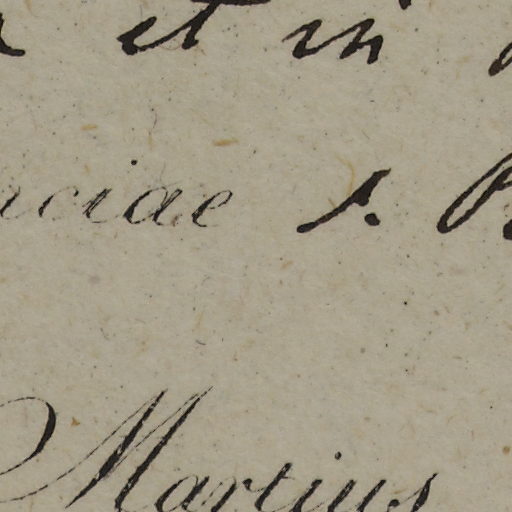 et in
ciae s. P
Martius